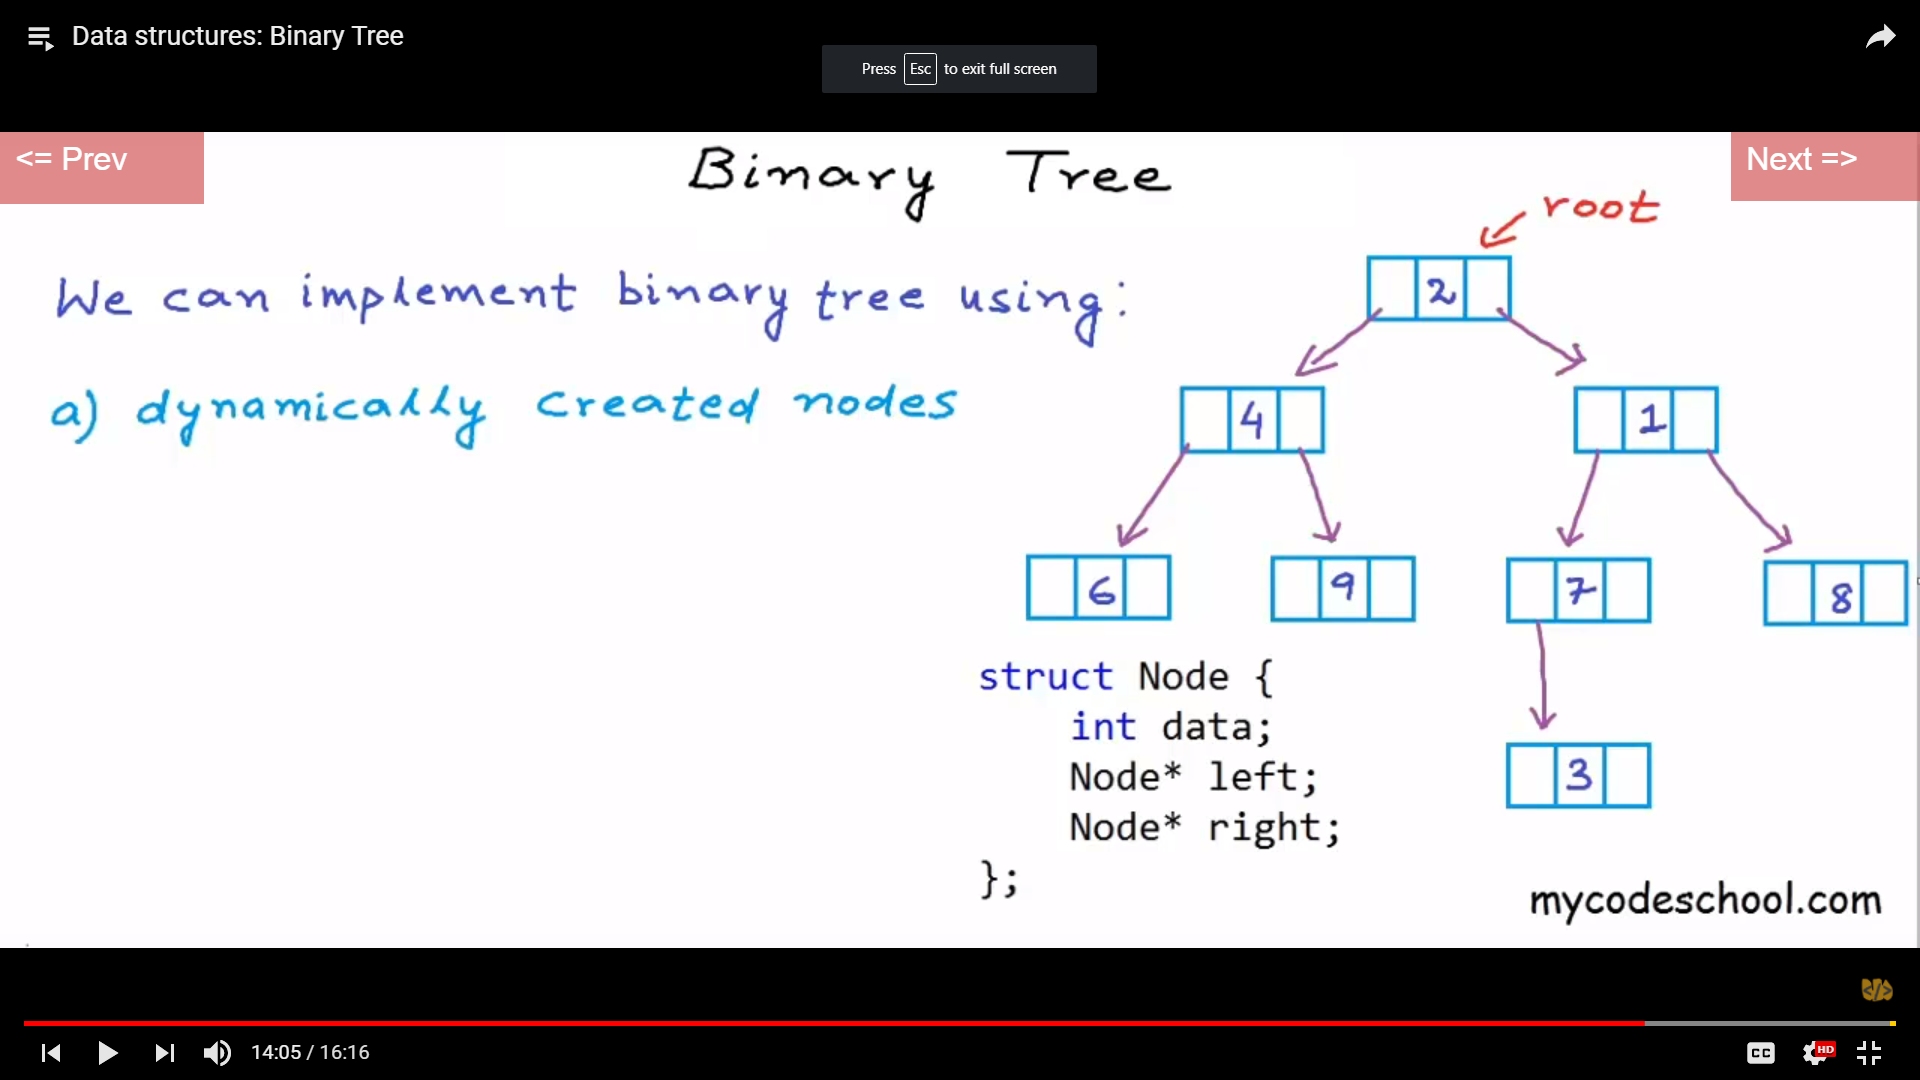 Data structures: Binary Tree
Press Esc to exit full screen
<= Prev
Binary Tree
Next =>
root
We can implement binary tree using:
a) dynamically created nodes
2
4
1
6
9
7
8
3
struct Node {
int data;
Node* left;
Node* right;
};
mycodeschool.com
</>
14:05 / 16:16
CC
HD